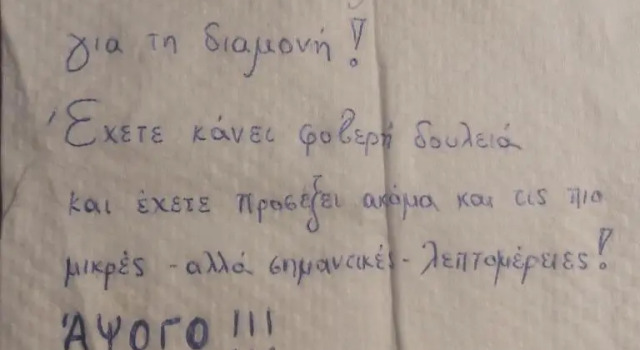 για τη διαμονή!
Έχετε κάνει φοβερή δουλειά
και έχετε προσέξει ακόμα και τις πιο
μικρές - αλλά σημαντικές - λεπτομέρειες!
ΆΨΟΓΟ!!!